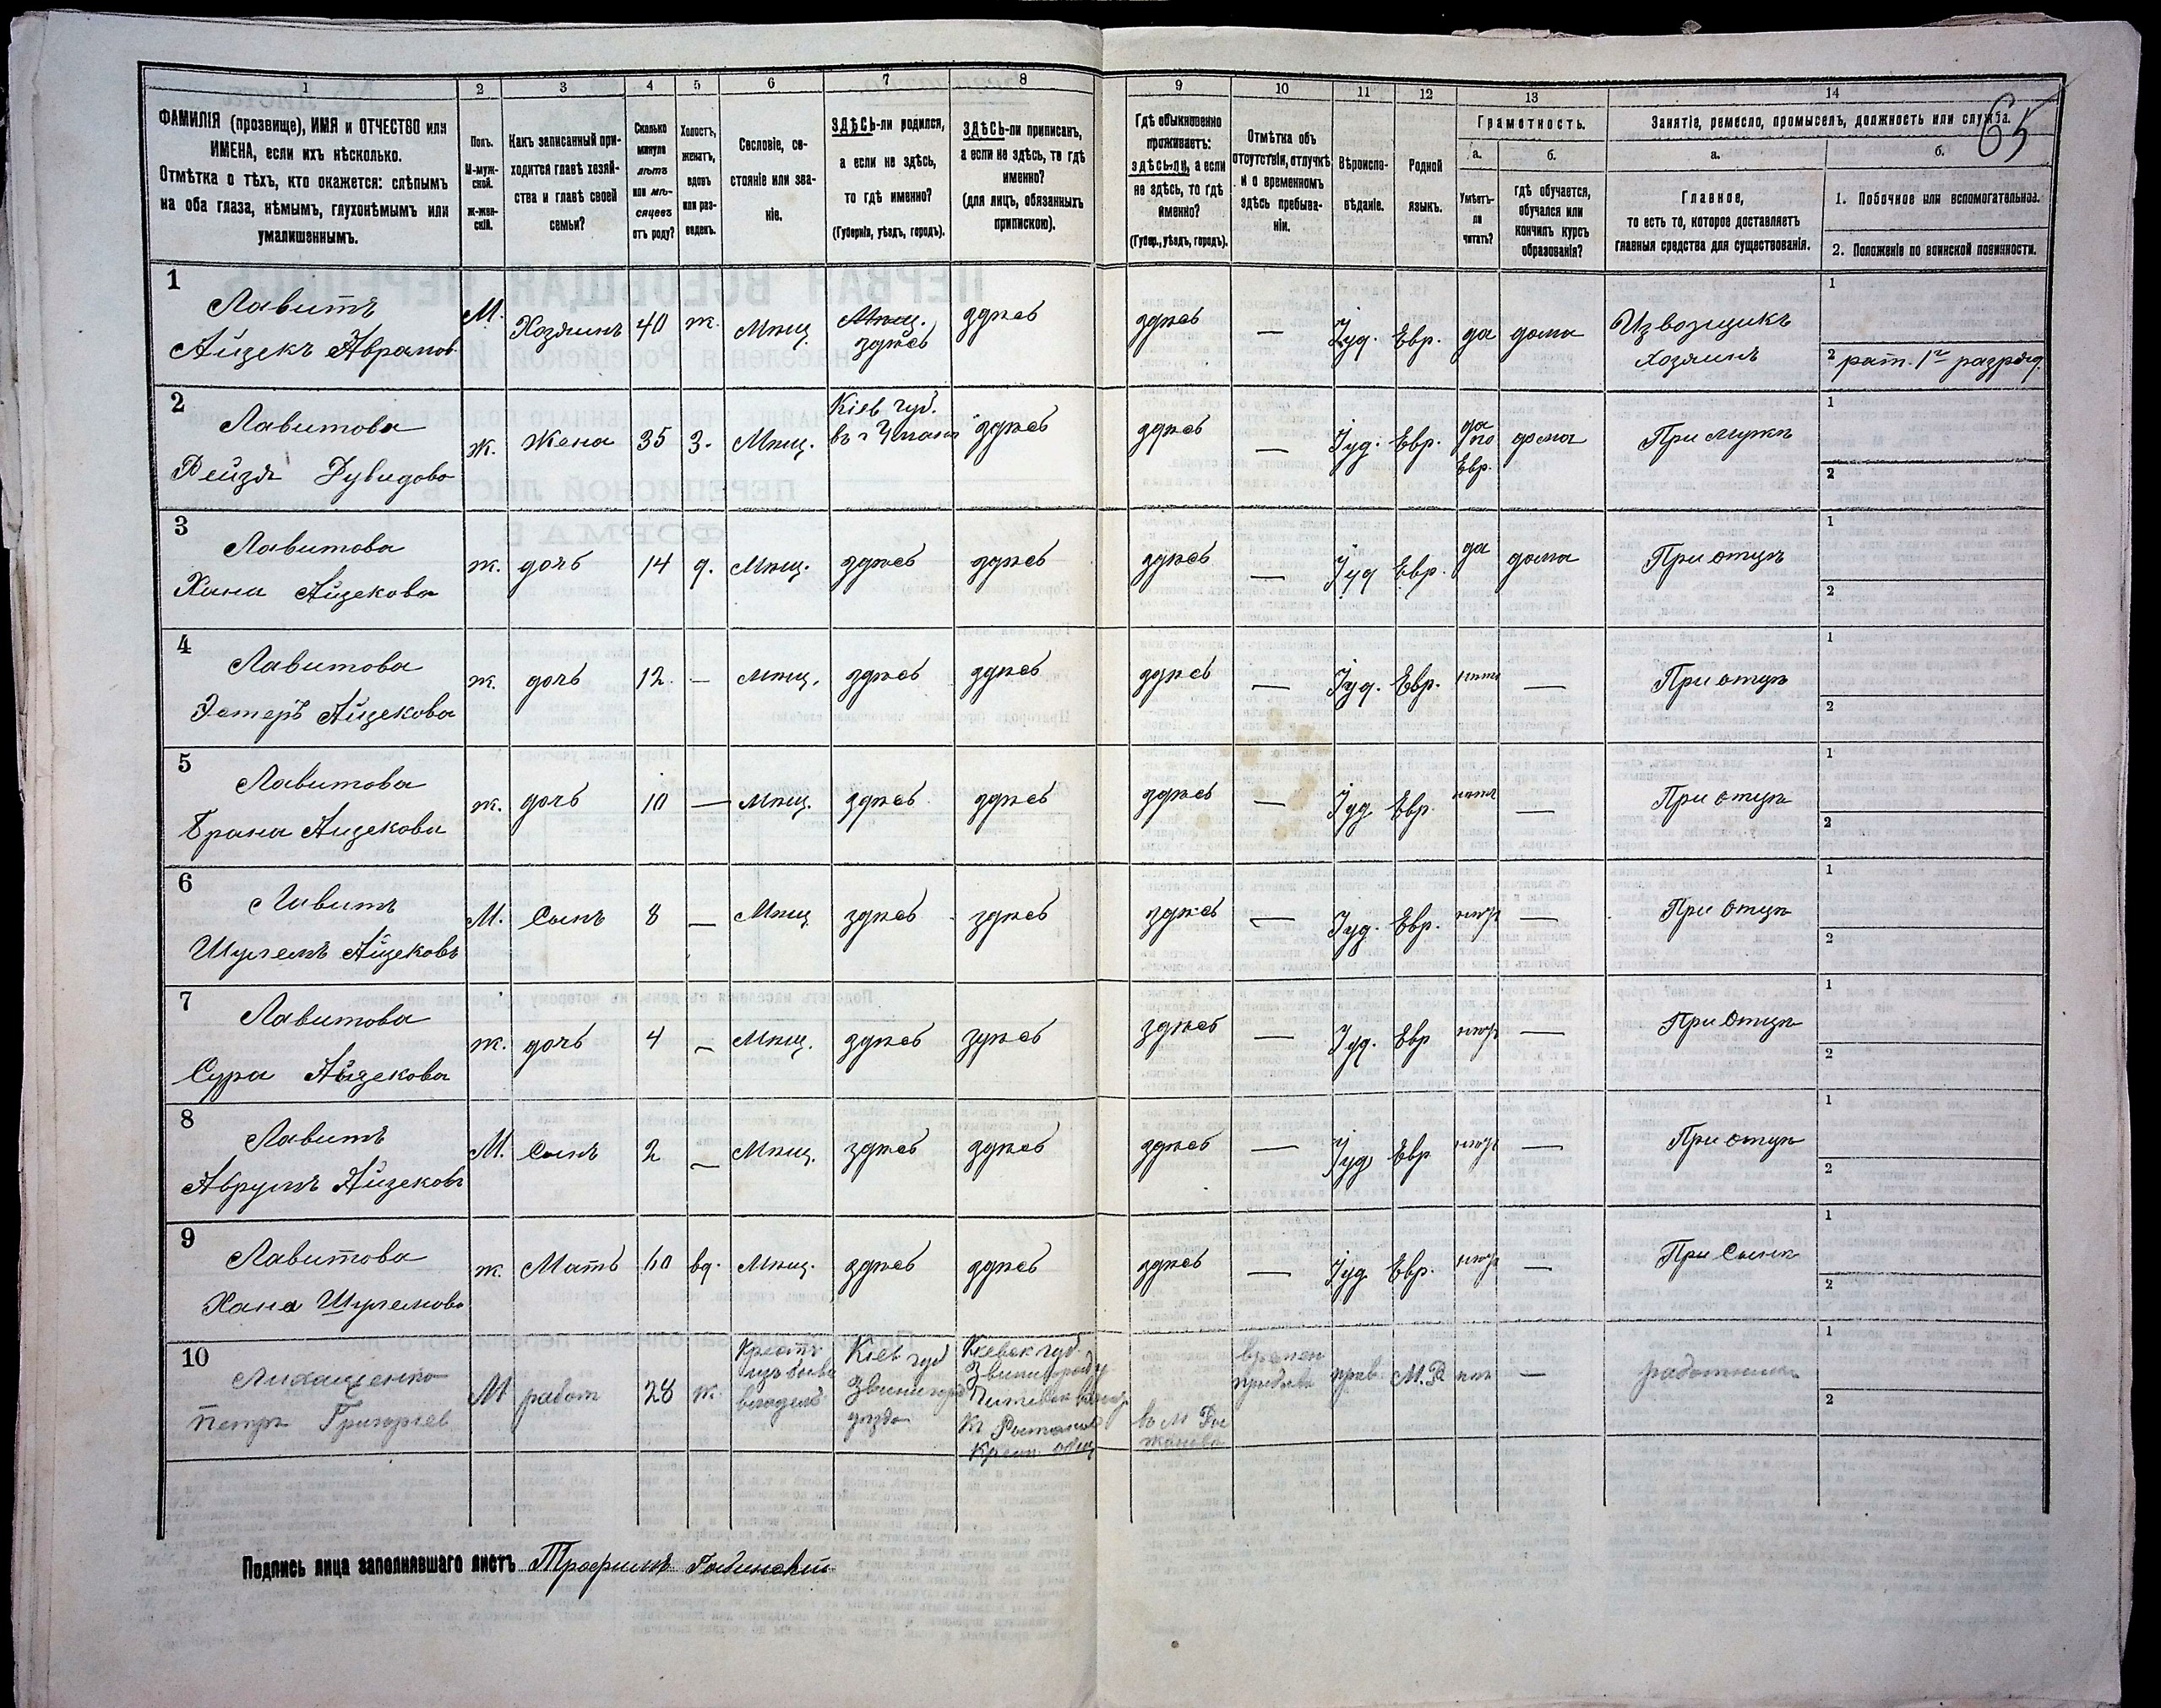 65
1 2 3 4 5 6 7 8 9 10 11 12 13 14
ФАМИЛІЯ (прозвище), ИМЯ и ОТЧЕСТВО или
ИМЕНА, если ихъ нѣсколько.
Отмѣтка о тѣхъ, кто окажется: слѣпымъ
на оба глаза, нѣмымъ, глухонѣмымъ или
умалишеннымъ.
Полъ.
М-муж-
ской.
Ж-жен-
скій.
Какъ записанный при-
ходится главѣ хозяй-
ства и главѣ своей
семьи?
Сколько
минуло
лѣтъ
или мѣ-
сяцевъ
отъ роду?
Холостъ,
женатъ,
вдовъ
или раз-
веденъ.
Сословіе, со-
стояніе или зва-
ніе.
ЗДѢСЬ-ли родился,
а если не здѣсь,
то гдѣ именно?
(Губернія, уѣздъ, городъ).
ЗДѢСЬ-ли приписанъ,
а если не здѣсь, то гдѣ
именно?
(для лицъ, обязанныхъ
припискою).
Гдѣ обыкновенно
проживаетъ:
здѣсь-ли, а если
не здѣсь, то гдѣ
именно?
(Губер., уѣздъ, городъ).
Отмѣтка объ
отсутствіи, отлучкѣ
и о временномъ
здѣсь пребыва-
ніи.
Вѣроиспо-
вѣданіе.
Родной
языкъ.
Грамотность.
а.
Умѣетъ-
ли
читать?
б.
гдѣ обучается,
обучался или
кончилъ курсъ
образованія?
Занятіе, ремесло, промыселъ, должность или служба.
а.
Главное,
то есть то, которое доставляетъ
главныя средства для существованія.
б.
1. Побочное или вспомогательное.
2. Положеніе по воинской повинности.
1
Лавитъ
Айзекъ Аврамов.
М. Хозяинъ 40 ж. Мѣщ. Мѣщ. здѣсь здѣсь здѣсь — Іуд. Евр. да дома Извозщикъ
хозяинъ
1
2 рат. 1го разряд.
2
Лавитова
Рейзя Дувидова
ж. Жена 35 З. Мѣщ. Кіев. губ.
въ г Умани здѣсь здѣсь — Іуд. Евр. да
по
Евр. дома При мужѣ
1
2
3
Лавитова
Хана Айзекова
ж. дочь 14 д. Мѣщ. здѣсь здѣсь здѣсь — Іуд Евр. да дома При отцѣ
1
2
4
Лавитова
Эстеръ Айзекова
ж. дочь 12. — Мѣщ. здѣсь здѣсь здѣсь — Іуд. Евр. нѣтъ — При отцѣ
1
2
5
Лавитова
Брана Аизекова
ж. дочь 10 — Мѣщ. здѣсь здѣсь здѣсь — Іуд Евр. нѣтъ — При отцѣ
1
2
6
Лавитъ
Шулемъ Айзековъ
М. Сынъ 8 — Мѣщ. здѣсь здѣсь здѣсь — Іуд. Евр. нѣтъ — При отцѣ
1
2
7
Лавитова
Сура Айзекова
ж. дочь 4 — Мѣщ. здѣсь здѣсь здѣсь — Іуд. Евр нѣтъ — При Отцѣ
1
2
8
Лавитъ
Аврумъ Айзековъ
М. Сынъ 2 — Мѣщ. здѣсь здѣсь здѣсь — Іуд Евр нѣтъ — При отцѣ
1
2
9
Лавитова
Хана Шулемова
ж. Мать 60 вд. Мѣщ. здѣсь здѣсь здѣсь — Іуд Евр. нѣтъ — При Сынѣ
1
2
10
Петръ Григорьев
М работ 28 ж. Кіев губ
Звенигород
уѣзда
М.Р —
1
2
Подпись лица заполнявшаго листъ Трофимъ